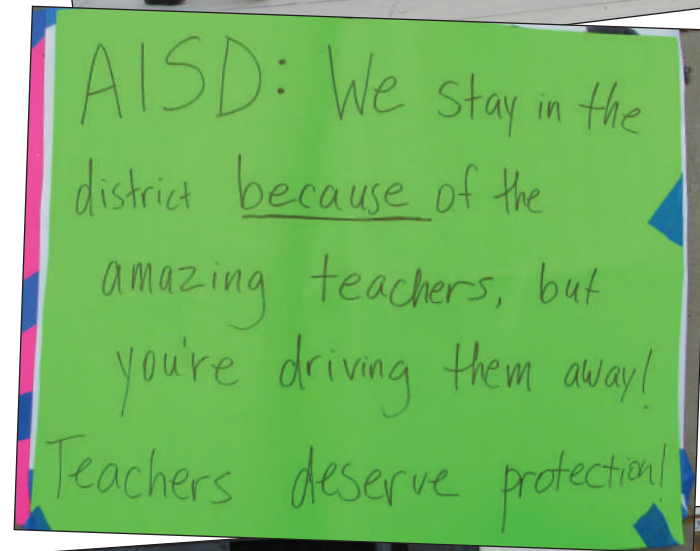 AISD: We stay in the
district because of the
amazing teachers, but
you're driving them away!
Teachers deserve protection!